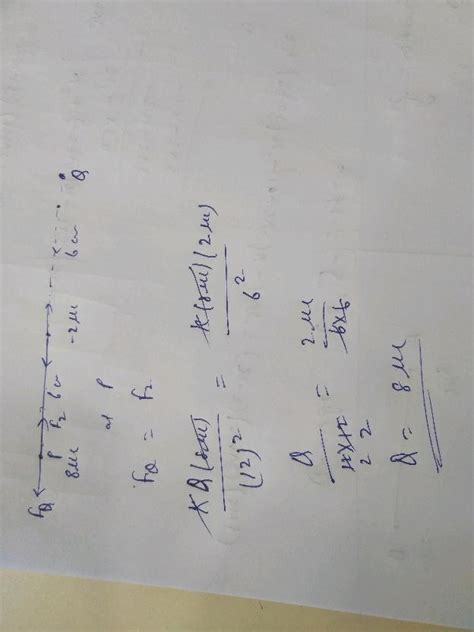 F_Q F_2
P 6cm 6cm
8μc -2μc Q
at P
F_Q = F_2
KQ(8μc) / (12)^2 = K(8μc)(2μc) / 6^2
Q / 12×12 = 2μc / 6×6
2 2
Q = 8μc